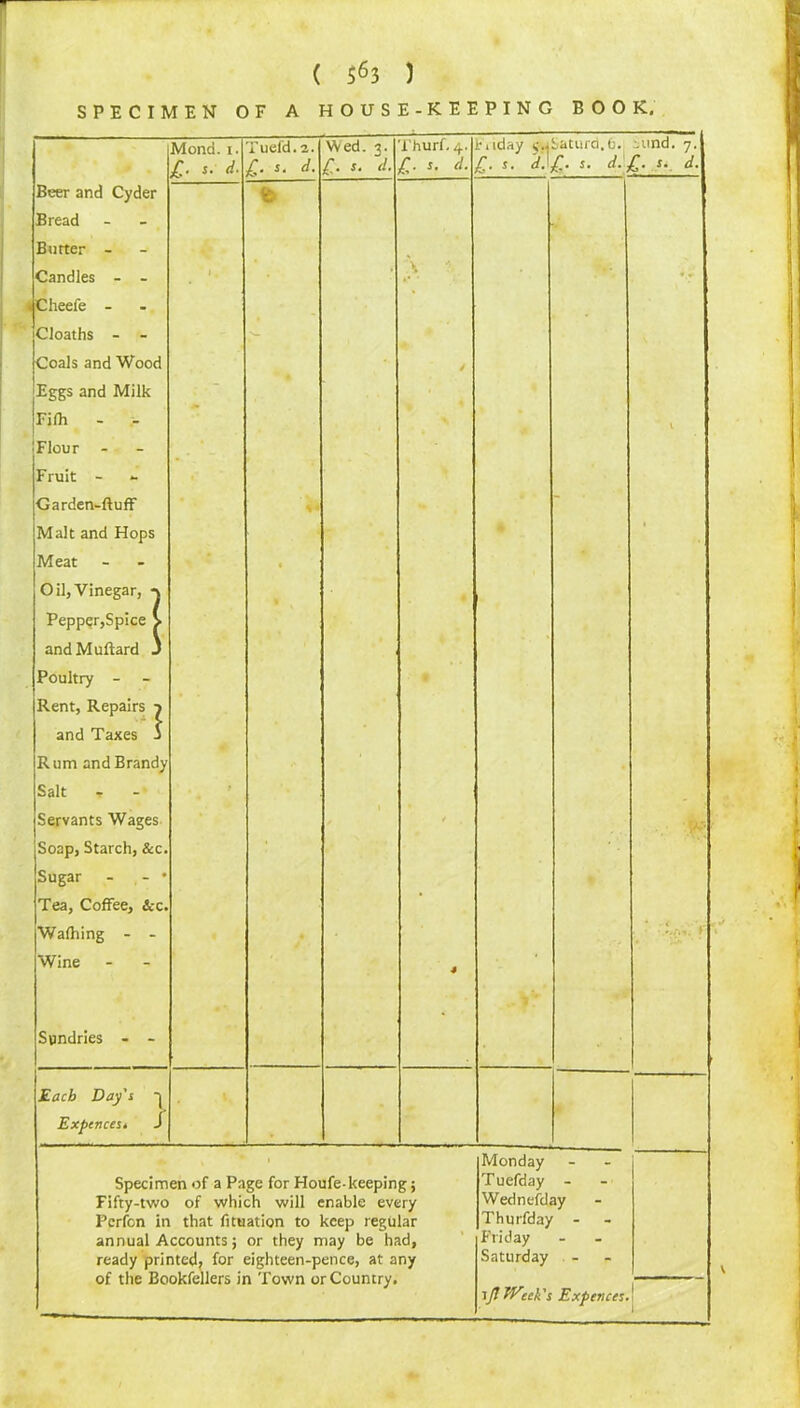 ( 563 )
SPECIMEN OF A HOUSE-KEEPING BOOK.
Mond. 1. Tuesd. 2. Wed. 3. Thurs. 4. Friday 5. Saturd. 6. Sund. 7.
£. s. d. £. s. d. £. s. d. £. s. d. £. s. d. £. s. d. £. s. d.
Beer and Cyder
Bread - -
Butter - -
Candles - -
Cheeſe - -
Cloaths - -
Coals and Wood
Eggs and Milk
Fiſh - -
Flour - -
Fruit - -
Garden-ſtuff
Malt and Hops
Meat - -
Oil, Vinegar, }
Pepper, Spice }
and Muſtard }
Poultry - -
Rent, Repairs }
and Taxes }
Rum and Brandy
Salt - -
Servants Wages
Soap, Starch, &c.
Sugar - -
Tea, Coffee, &c.
Waſhing - -
Wine - -
Sundries - -
Each Day's }
Expences. }
Specimen of a Page for Houſe-keeping;
Fifty-two of which will enable every
Perſon in that ſituation to keep regular
annual Accounts; or they may be had,
ready printed, for eighteen-pence, at any
of the Bookſellers in Town or Country.
Monday - -
Tueſday - -
Wedneſday -
Thurſday - -
Friday - -
Saturday - -
1ſt Week's Expences.